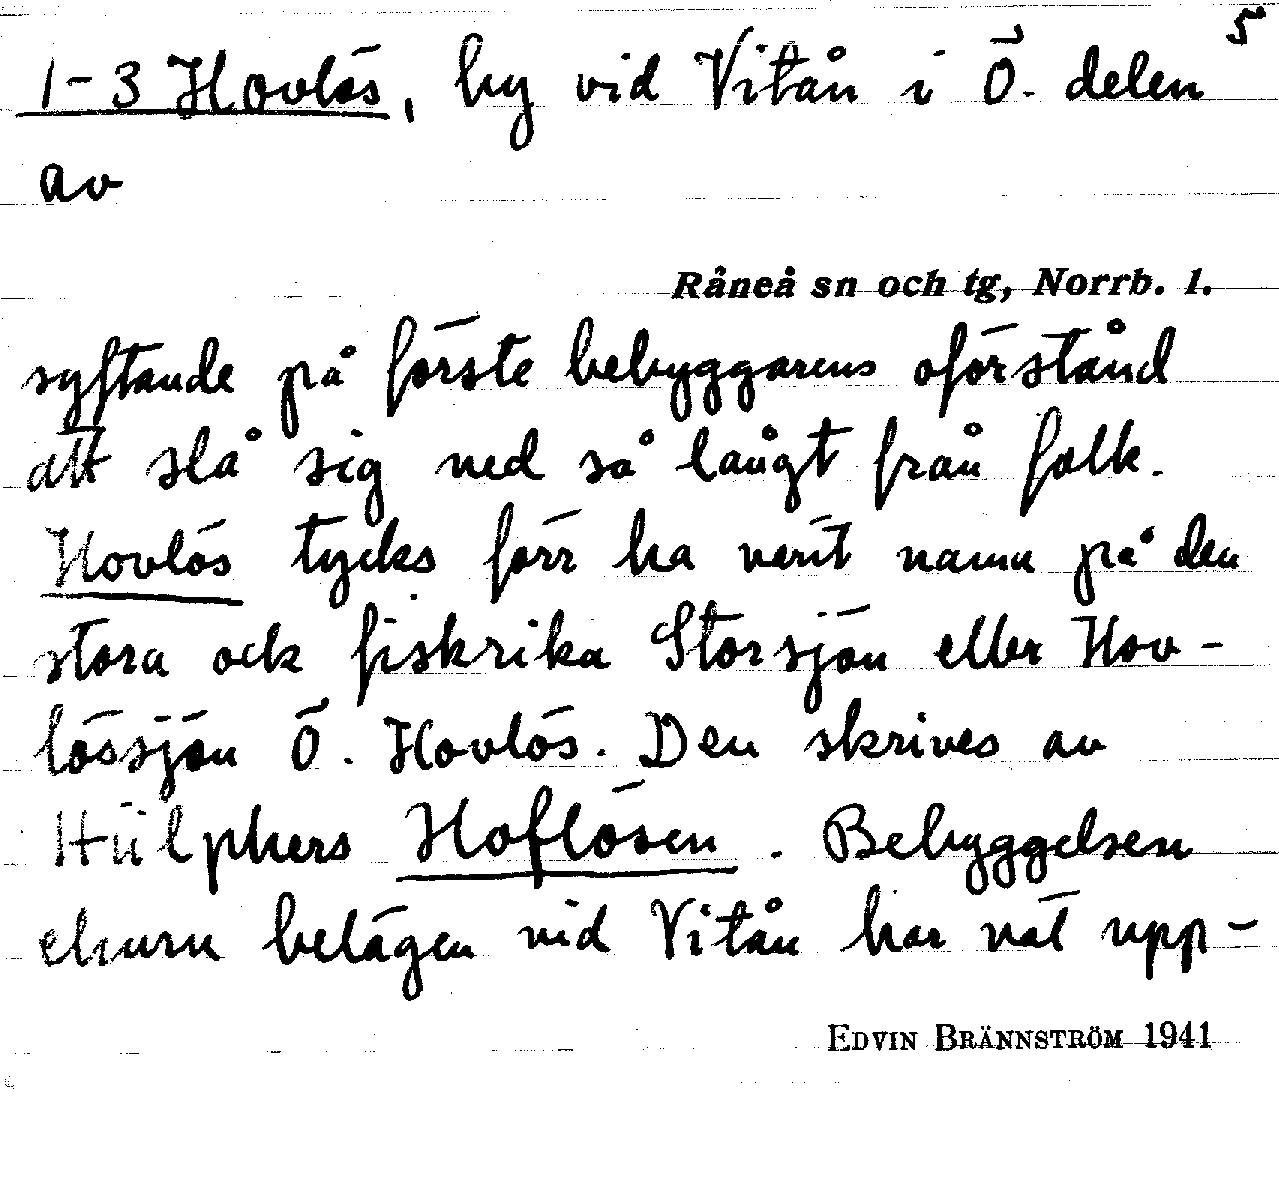 5
1-3 Hovlös, by vid Vitån i Ö. delen
av
Råneå sn och tg, Norrb. l.
syftande på förste bebyggarens oförstånd
att slå sig ned så långt från folk.
Hovlös tycks förr ha varit namn på den
stora ock fiskrika Storsjön eller Hov-
lössjön Ö. Hovlös. Den skrives av
Hülphers Hoflösen. Bebyggelsen
ehuru belägen vid Vitån har väl upp-
EDVIN BRÄNNSTRÖM 1941